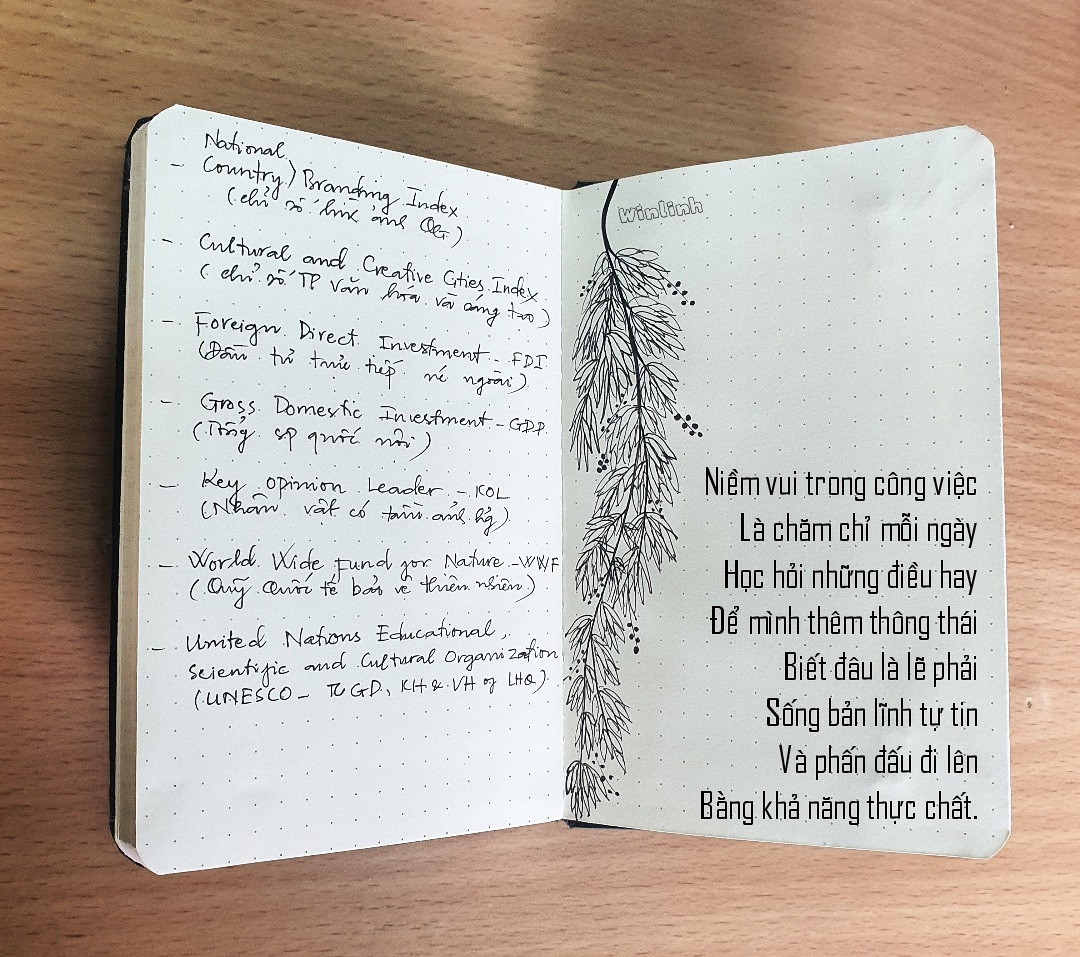 National
- Country) Branding Index
(chỉ số hình ảnh QG)
- Cultural and Creative Cities Index
(chỉ số TP văn hóa và sáng tạo)
- Foreign Direct Investment - FDI
(Đầu tư trực tiếp nc ngoài)
- Gross Domestic Investment - GDP
(Tổng sp quốc nội)
- Key Opinion Leader - KOL
(Nhân vật có tầm ảnh hg)
- World Wide Fund for Nature - WWF
(Quỹ Quốc tế bảo vệ thiên nhiên)
- United Nations Educational,
Scientific and Cultural Organization
(UNESCO - TC GD, KH & VH of LHQ)
Winlinh
Niềm vui trong công việc
Là chăm chỉ mỗi ngày
Học hỏi những điều hay
Để mình thêm thông thái
Biết đâu là lẽ phải
Sống bản lĩnh tự tin
Và phấn đấu đi lên
Bằng khả năng thực chất.